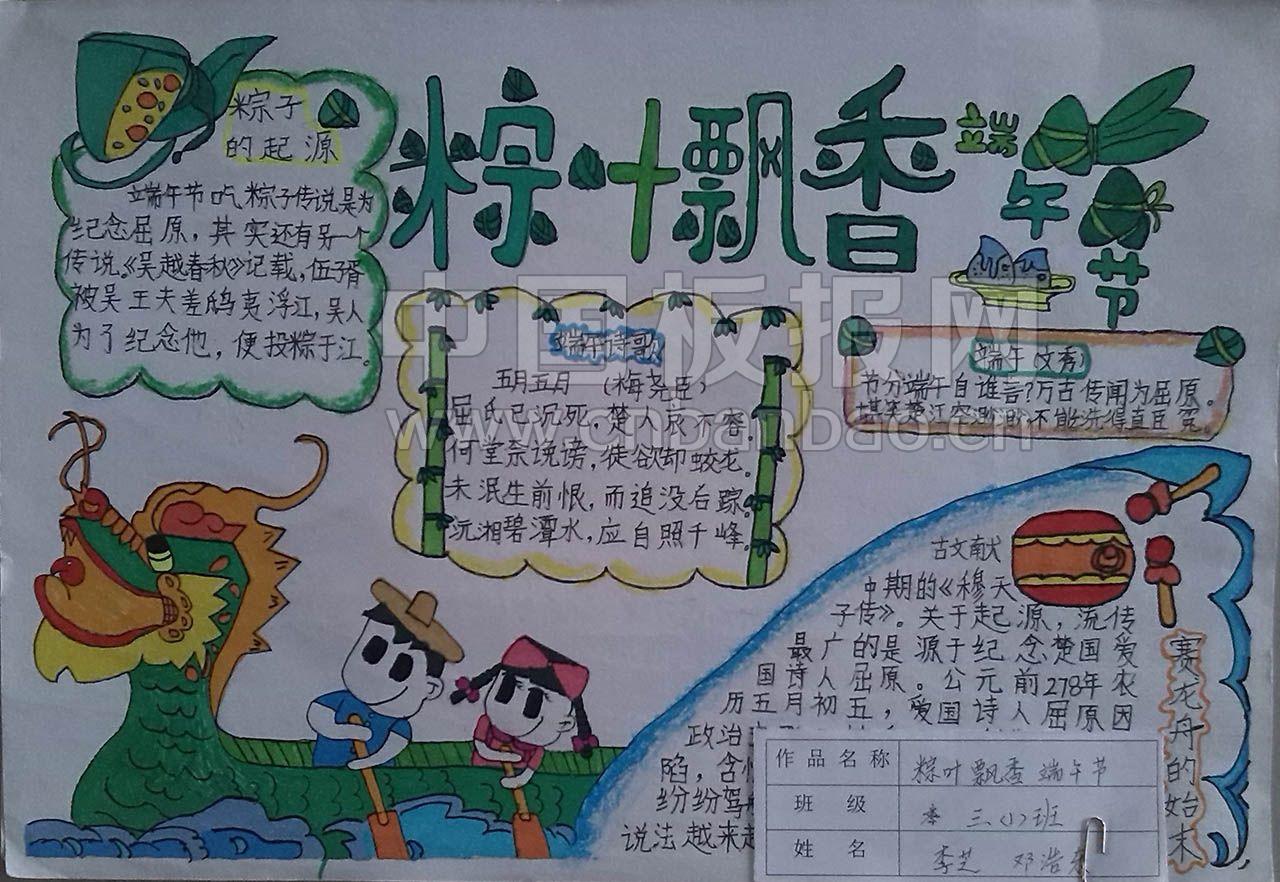 粽叶飘香
端午节
粽子
的起源
端午节吃粽子传说是为
纪念屈原，其实还有另一个
传说。《吴越春秋》记载，伍子胥
被吴王夫差鸱夷浮江，吴人
为了纪念他，便投粽于江。
端午诗歌
五月五日（梅尧臣）
屈氏已沉死，楚人哀不容。
何尝奈谗谤，徒欲却蛟龙。
未泯生前恨，而追没后踪。
沅湘碧潭水，应自照千峰。
端午（文秀）
节分端午自谁言？万古传闻为屈原。
堪笑楚江空渺渺不能洗得直臣冤。
赛龙舟的始末
古文献
中期的《穆天
子传》。关于起源，流传
最广的是源于纪念楚国爱
国诗人屈原。公元前278年农
历五月初五，爱国诗人屈原因
政治
陷，含
纷纷驾
说法越来
作品名称
粽叶飘香 端午节
班级
三(1)班
姓名
李芝 邓浩
中国板报网
www.cnbanbao.cn